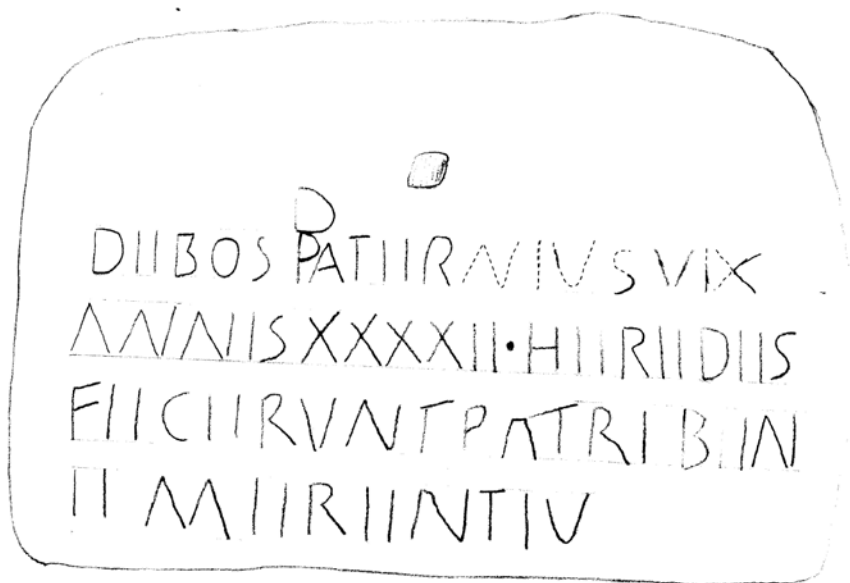 D
DIIBOS PATIIRNIVS VIX
ANNIS XXXXII · HIIRIIDIIS
FIICIIRVNT PATRI BIIN
II MIIRIINTIV